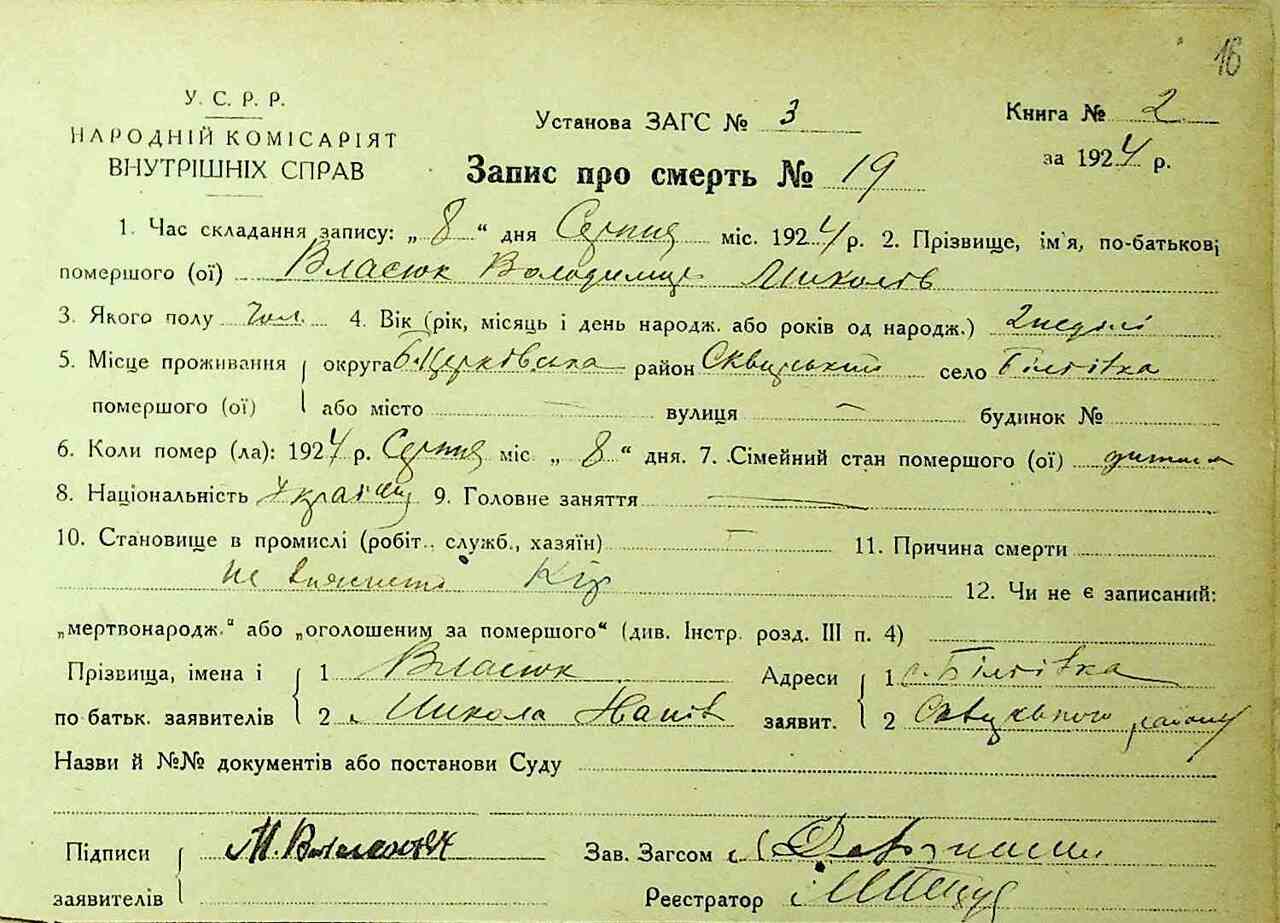 16
У. С. Р. Р.
НАРОДНІЙ КОМІСАРІЯТ
ВНУТРІШНІХ СПРАВ
Установа ЗАГС № 3
Книга № 2
за 1924 р.
Запис про смерть № 19
1. Час складання запису: „ 8 “ дня Серпня міс. 1924 р. 2. Прізвище, ім'я, по-батькові
помершого (ої) Власюк Володимир Миколів
3. Якого полу Чол. 4. Вік (рік, місяць і день народж. або років од народж.) 2 неділі
5. Місце проживання округа Б. Церківська район Сквирський село Білиївка
помершого (ої) або місто — вулиця — будинок №
6. Коли помер (ла): 1924 р. Серпня міс. „ 8 “ дня. 7. Сімейний стан помершого (ої) дитина
8. Національність 9. Головне заняття —
10. Становище в промислі (робіт., служб., хазяїн) — 11. Причина смерти
не Кір 12. Чи не є записаний:
„мертвонародж.“ або „оголошеним за помершого“ (див. Інстр. розд. III п. 4)
Прізвища, імена і 1 Власюк Адреси 1 с. Білиївка
по батьк. заявителів 2 Микола заявит. 2 Сквирського району
Назви й №№ документів або постанови Суду
Підписи М. Зав. Загсом
заявителів Реестратор